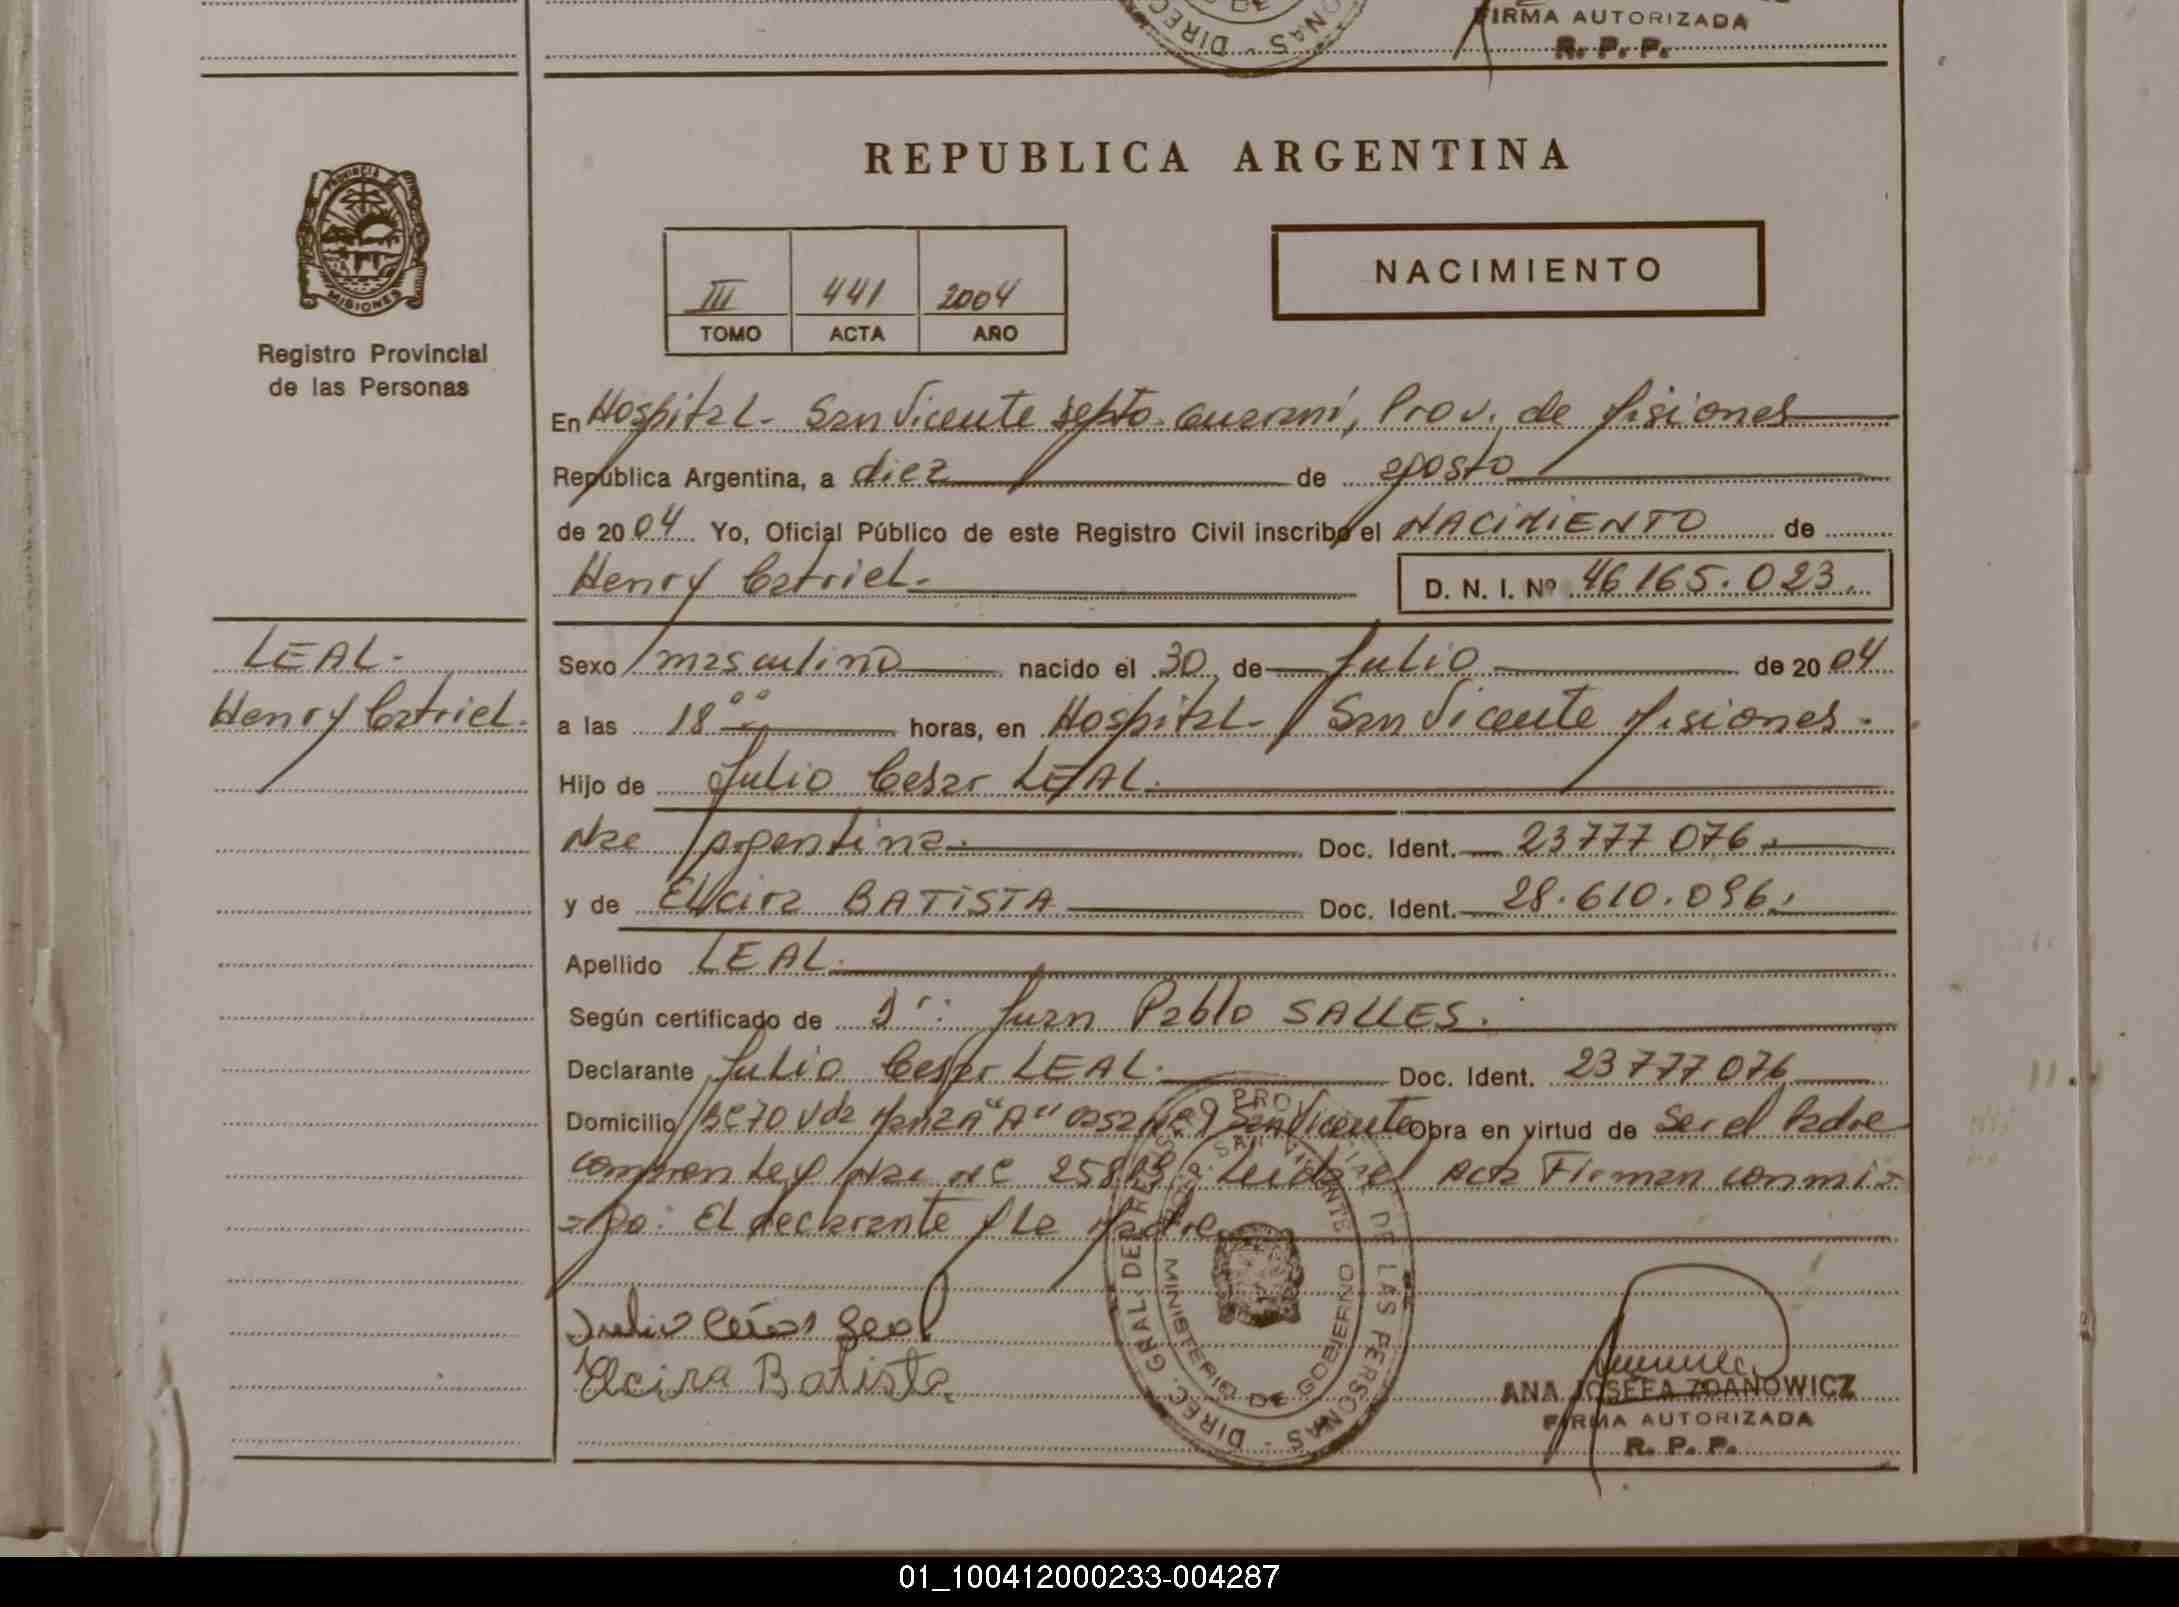 FIRMA AUTORIZADA
R. P. P.
REPUBLICA ARGENTINA
PROVINCIA DE
MISIONES
Registro Provincial
de las Personas
III 441 2004
TOMO ACTA AÑO
NACIMIENTO
En Hospital - San Vicente Depto. Guaraní, Prov. de Misiones
República Argentina, a diez de agosto
de 2004 Yo, Oficial Público de este Registro Civil inscribo el NACIMIENTO de
Henry Catriel. D. N. I. Nº 46165.023.
LEAL.
Henry Catriel.
Sexo masculino nacido el 30 de Julio de 2004
a las 18 ºº horas, en Hospital - San Vicente Misiones.
Hijo de Julio Cesar LEAL.
Nac Argentina. Doc. Ident. 23777 076.
y de Elcira BATISTA Doc. Ident. 28.610.096.
Apellido LEAL.
Según certificado de Dr: Juan Pablo SALLES.
Declarante Julio Cesar LEAL. Doc. Ident. 23777076
Domicilio Bº 70 Vdas Manzana "A" casa Nº San Vicente Obra en virtud de Ser el Padre
Ley Nac Nº Leida el Acta Firman conmi=
=go: El declarante y La Madre
Julio César Leal
Elcira Batista
DIREC. GRAL. DEL REG. PROVINCIAL DE LAS PERSONAS
SAN VICENTE
MINISTERIO DE GOBIERNO
ANA JOSEFA ZDANOWICZ
FIRMA AUTORIZADA
R. P. P.
01_100412000233-004287